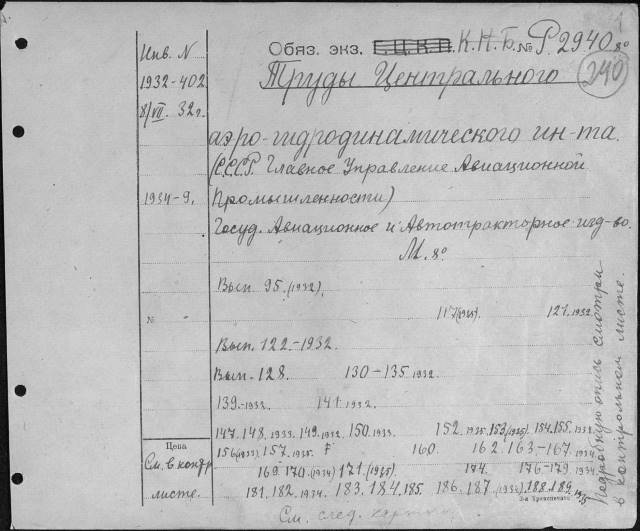 Обяз. экз. Г.Ц.К.П. К.Н.Б. № Р 2940 8°
240
Инв. N
1932-402
8/VII. 32г.
1934-9.
Труды Центрального
аэро-гидродинамического ин-та.
(СССР. Главное Управление Авиационной
Промышленности)
Госуд. Авиационное и Автотракторное изд-во.
М. 8°
Вып. 95. (1932).
117 (1935). 121. 1932.
№
Вып. 122-1932.
Вып. 128. 130-135. 1932.
139.-1932. 141. 1932.
147. 148. 1933. 149. 1932. 150. 1933. 152. 1935. 153 (1935). 154. 155. 1933.
156 (1933). 157. 1935. 160. 162. 163.-167. 1934.
169. 170. (1934) 171. (1935). 174. 176-179. 1934.
181. 182. 1934. 183. 184. 185. 186. 187. (1934). 188. 189. 1935
Цена
См. в контр
листе.
См. след. карточ
подробную опись смотри
в контрольном листе.